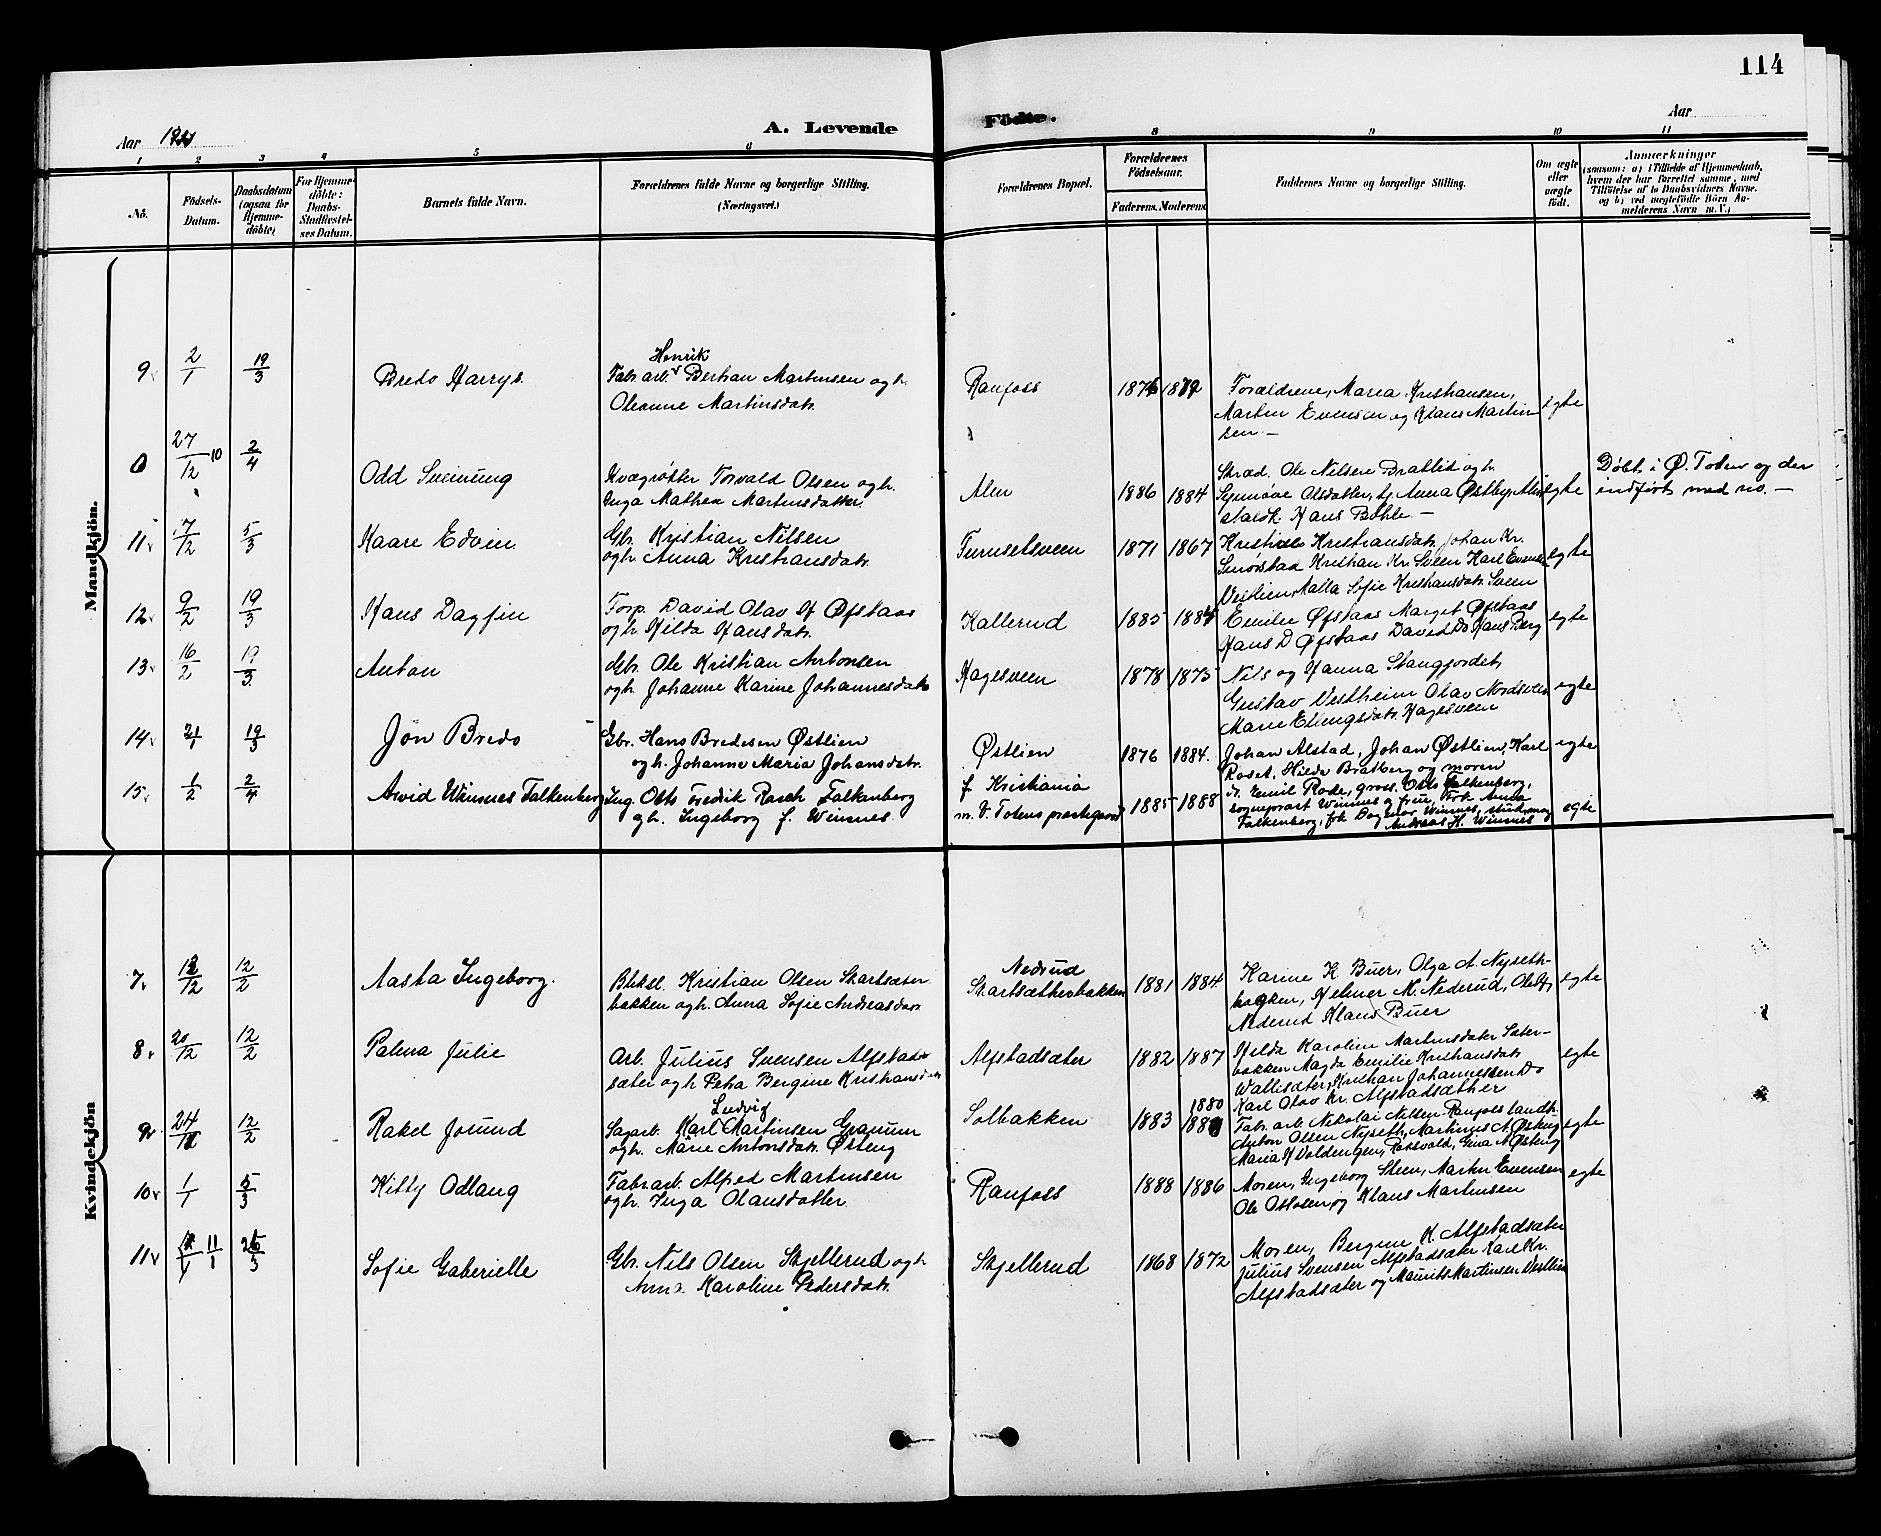 114
Aar
A. Levende Födte.
Aar
1 2 3 4 5 6 8 9 10 11
No.
Födsels-Datum.
Daabsdatum (ogsaa for Hjemme-döbte)
For Hjemme-döbte: Daabs-Stadfæstel-ses Datum.
Barnets fulde Navn.
Forældrenes fulde Navne og borgerlige Stilling. (Næringsvei.)
Forældrenes Bopæl.
Forældrenes Födselsaar.
Faderens. Moderens.
Faddernes Navne og borgerlige Stilling.
Om ægte eller uægte födt.
Anmærkninger
(saasom: a) i Tilfælde af Hjemmedaab,
hvem der har forrettet samme, med
Tilföielse af to Daabsvidners Navne.
og b) ved uægtefödte Börn An-
melderens Navn m.V.)
Mandkjön.
9 2/1 19/3 Bredo Harrys.
Henrik
Fabr.arb. Bertian Martinsen og h.
Oleanne Martinsdatr.
Raufoss
Forældrene, Maria Kristiansen,
Martin Evensen og Klaus Martin
sen. —
egte
0 27/12 10 2/4 Odd Sveinung
Kvægrøkter Torvald Olsen og h.
Inga Mathea Martinsdatter.
Alm
1886 1884
Skræd. Ole Nilsen Brattlid og h.
Synnøve Olsdatter, Anna Østby,
Hans Bøhle. —
egte
Døbt i Ø. Toten og der
indført med no. —
11 7/12 5/3 Kaare Edvin.
Gbr. Kristian Nilsen
og h. Anna Kristiansdatr.
Turuselsveen
1871 1867
Kristiansdatr. Johan Kr.
Smørstad Kristian Kr. Sveen Karl Evensen
Vestlien, Malla Sofie Kristiansdatr. Sveen
egte
12 9/2 19/3 Hans Dagfin
Torp. David Olav H Øfstaas
og h. Hilda Hansdatr.
Kallerud
1885
Emilie Øfstaas Marget Øfstaas
Hans D Øfstaas David Do Hans Berg
egte
13 16/2 19/3 Anton
Gbr. Ole Kristian Antonsen
og h. Johanne Karine Johannesdatr
Hagesveen
1878 1873
Nils og Hanna Stangjordet,
Gustav Vestheim Olav Nordsveen
Marie Elingsdatr. Hagesveen
egte
14 21/1 19/3 Jön Bredo
Gbr. Hans Bredesen Østlien
og h. Johanne Maria Johansdatr.
Østlien
1876 1884.
Johan Alstad, Johan Østlien, Karl
Roset, Hilda Bratberg og moren
egte
15 1/2 2/4 Arvid Winsnes Falkenberg
Ing. Otto Fredrik Rasch Falkenberg
og h. Ingeborg f. Winsnes.
f. Kristiania
m. V. Totens præstegaard
1885 1888
Emil Rode, gross. Otto Falkenberg,
sogneprest Winsnes og frue, Frk. Anna
Falkenberg, frk Dagmar Winsnes, stud.
Andreas H. Winsnes
egte
Kvindekjön
7 12/12 12/2 Aasta Ingeborg.
Bliksl. Kristian Olsen Skartsæter
bakken og h. Anna Sofie Andreasdatr.
Nedrud
Skartsætherbakken
1881 1884
Karine K Buer, Olga A. Nyseth-
bakken, Helmer M. Nederud,
Nederud Klaus Buer
egte
8 20/12 12/2 Palma Julie
Arb. Julius Svensen Alfstad
sæter og h. Petra Bergine Kristiansdatr
Alfstadsæter
1882 1887
Hilda Karoline Martinsdatter Sæter-
bakken Magda Emilie Kristiansdatr
Wallisæter, Kristian Johannessen Do
Karl Olav Kr. Alfstadsæther
egte
9 24/ 12/2 Rakel Jorund
Ludvig
Sagarb. Karl Martinsen Granum
og h. Marie Antonsdatr. Østeng
Solbakken
1883 1880
Fabr. arb. Nikolai Nilsen Raufoss landh.
Anton Olsen Nyseth, Martinus A. Østeng
Maria H Voldengen, Paksvold, Gina A Østeng
egte
10 1/1 5/3 Kitty Odlaug
Fabr.arb. Alfred Martinsen
og h. Inga Olausdatter.
Raufoss
1888 1886
Moren, Ingeborg Steen, Martin Evensen
Ole Ottosen og Klaus Martinsen
egte
11 11/1 26/3 Sofie Gaberielle
Gbr. Nils Olsen Skjellerud og h.
Anna Karoline Pedersdatr.
Skjellerud
1868 1872
Moren, Bergine K. Alfstadsæter
Julius Svensen Alfstadsæter Karl Kr.
Alfstadsæter og Maurits Martinsen Vestlien